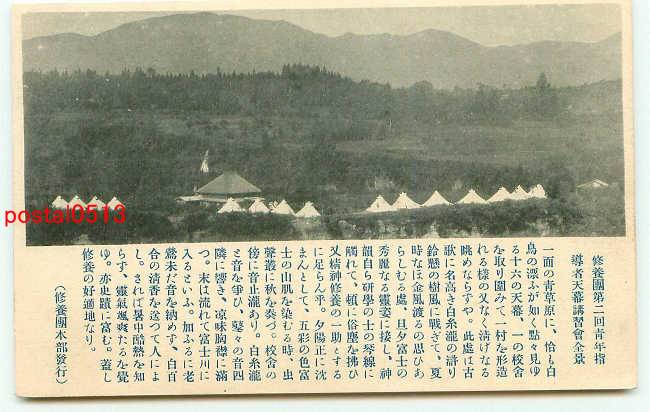 修養團第二回青年指
導者天幕講習會全景
一面の青草原に、恰も白
鳥の漂ふが如く點々見ゆ
る十六の天幕、一の校舍
を取り圍みて一村を形造
れる樣の又なく淸げなる
眺めならずや。此處は古
歌に名高き白糸瀧の滸り
鈴懸の樹風に戰ぎて、夏
時なほ金風渡るの思ひあ
らしむる處、旦夕富士の
秀麗なる靈姿に接し、神
韻自ら研學の士の琴線に
觸れて、頓に俗塵を拂ひ
又禱神修養の一助とする
に足らん乎。夕陽正に沈
まんとして、五彩の色富
士の山肌を染むる時、虫
聲叢に秋を奏づ。校舍の
傍に音止瀧あり。白糸瀧
と音を爭ひ、鼕々の音四
隣に響き、凉味胸襟に滿
つ。末は流れて富士川に
入るといふ。加ふるに老
鶯未だ音を納めず、白百
合の淸香を送つて人によ
し。されば暑中酷熱を知
らず、靈氣颯爽たるを覺
ゆ。亦史蹟に富む。蓋し
修養の好適地なり。
（修養團本部發行）
postal0513